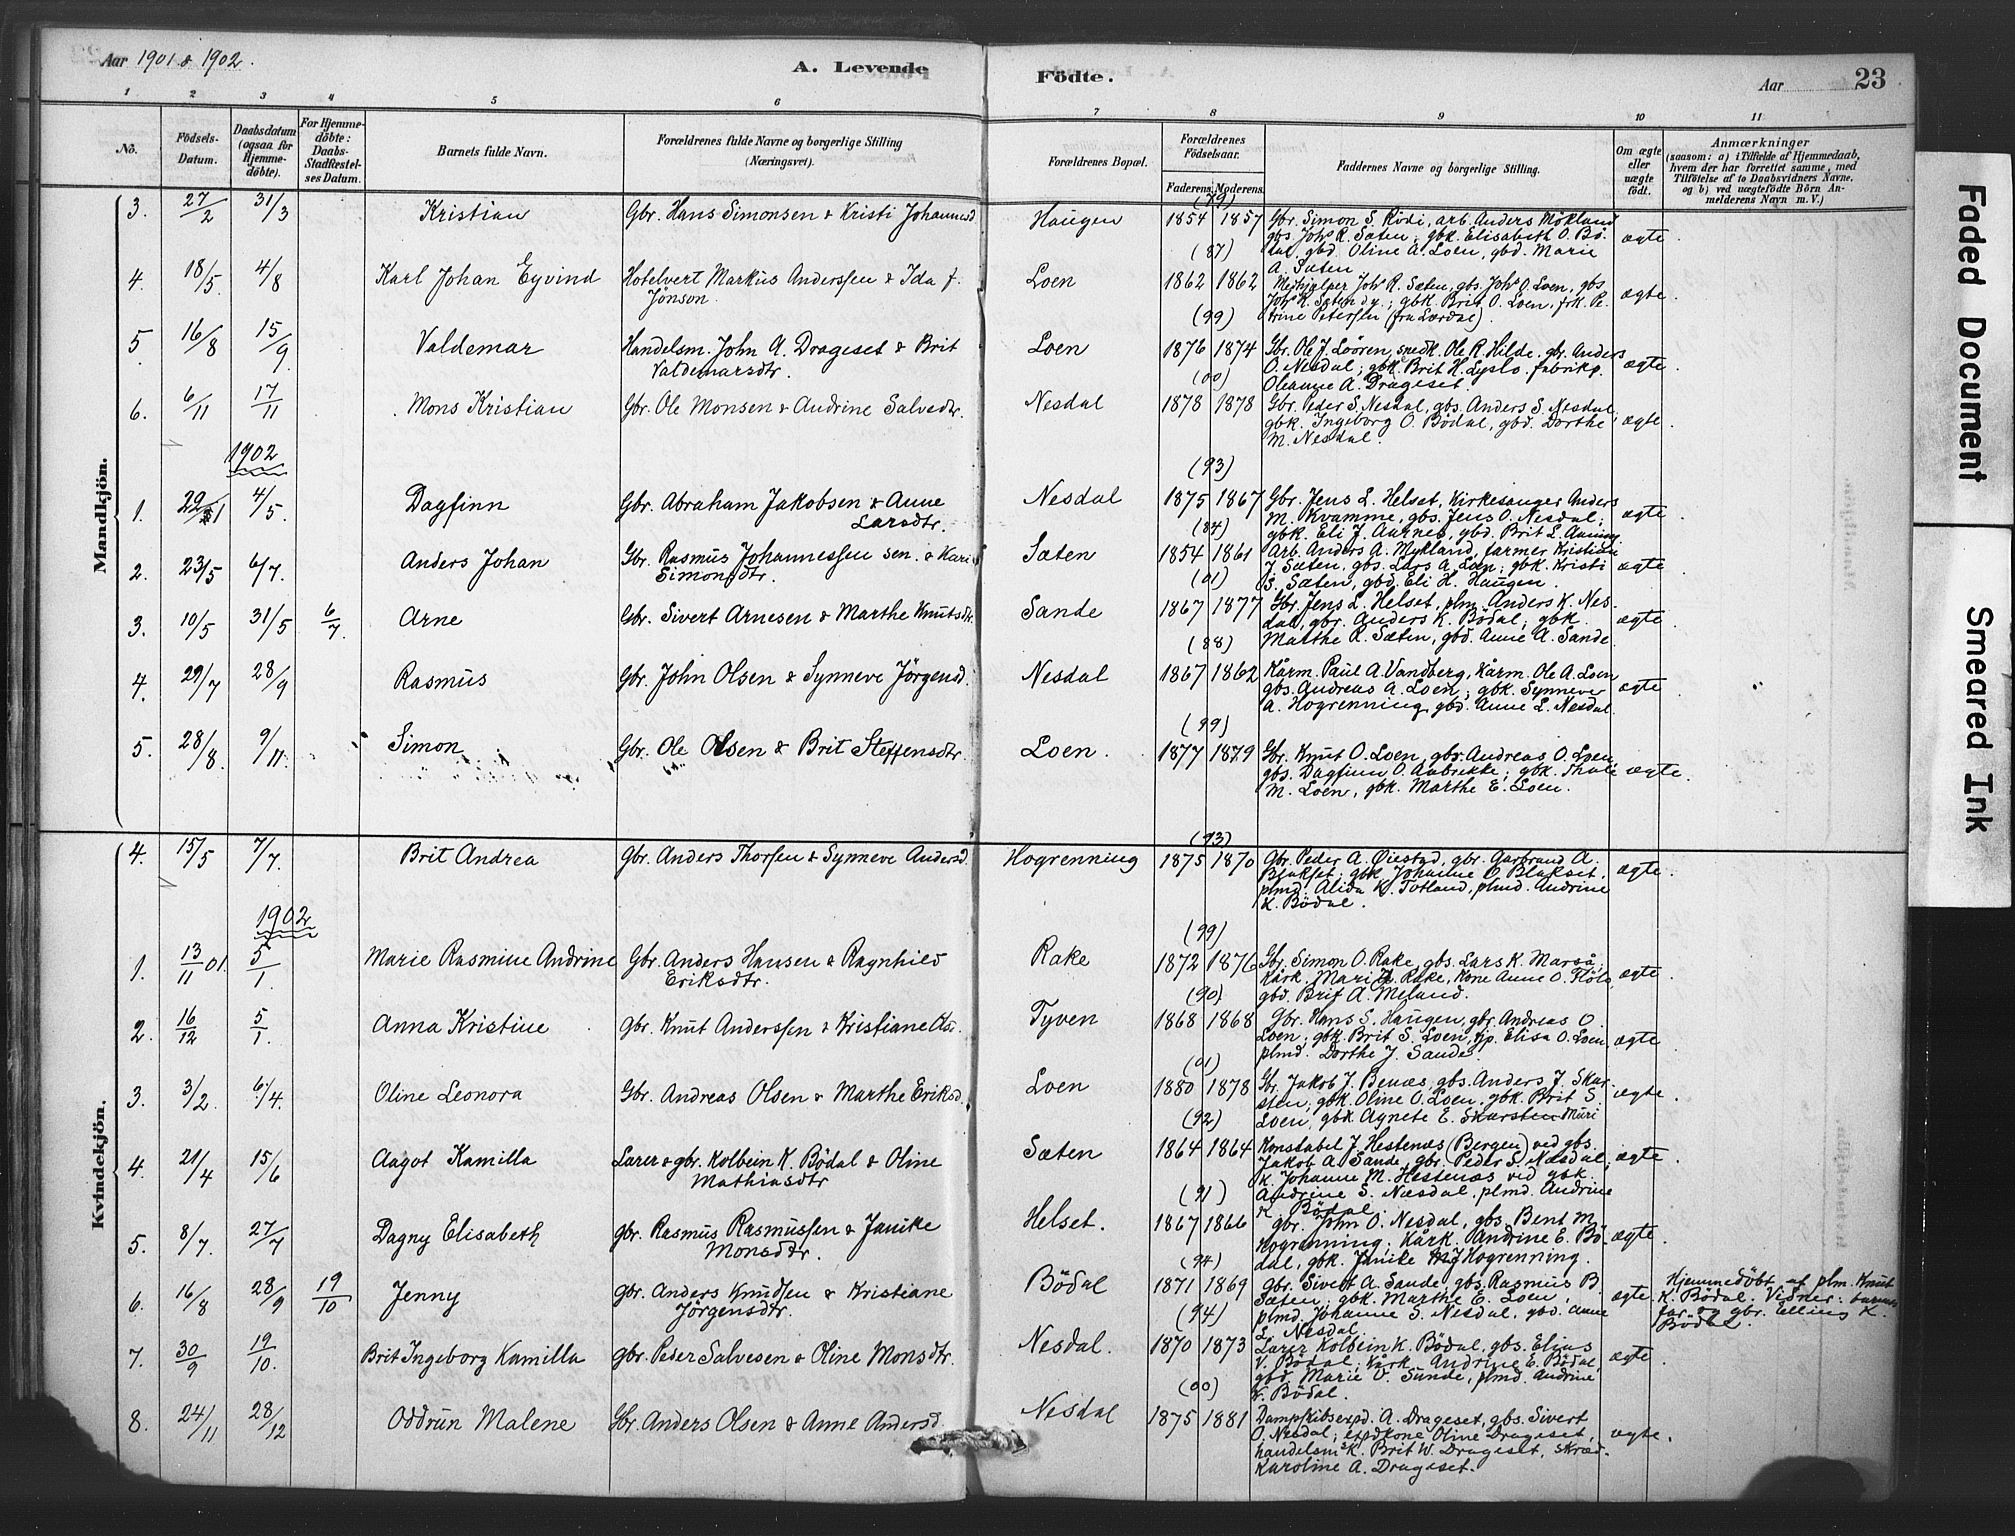 Aar 1901 & 1902.
A. Levende Födte.
Aar 23
1 2 3 4 5 6 7 8 9 10 11
No.
Födsels-Datum.
Daabsdatum (ogsaa for Hjemmedöbte).
For Hjemmedöbte: Daabs-Stadfæstelses Datum.
Barnets fulde Navn.
Forældrenes fulde Navne og borgerlige Stilling (Næringsvei).
Forældrenes Bopæl.
Forældrenes Födselsaar.
Faderens. Moderens.
Faddernes Navne og borgerlige Stilling.
Om ægte eller uægte födt.
Anmærkninger
(saasom: a) i Tilfælde af Hjemmedaab, hvem der har forrettet samme, med Tilföielse af to Daabsvidners Navne, og b) ved uægtefödte Börn Anmelderens Navn m. V.)
Mandkjön.
3. 27/2 31/3 Kristian Gbr. Hans Simonsen & Kristi Johannesd Haugen (79) 1854 1857 Gbr. Simon S. Rödi, arb. Anders Mökland
gbs. Johs R. Sæten; gbk. Elisabeth O. Bö-
dal, gbd. Oline A. Loen, gbd. Marie
A. Sæten ægte.
4. 18/5 4/8 Karl Johan Eyvind Hotelvert Markus Anderssen & Ida f.
Jönson. Loen (87) 1862 1862 Johs R. Sæten, gbs. Johs O. Loen, gbs
Johs K. Sæten d.y.; gbk. Brit O. Loen, frk. Pe-
trine Petersen (fra Lærdal). ægte.
5 16/8 15/9. Valdemar Handelsm. John A. Drageset & Brit
Valdemarsdtr. Loen (99) 1876 1874 Gbr. Ole J. Loören, snedk. Ole R. Hilde, gbr. Anders
O. Nesdal; gbk. Brit H. Lyslo, fabrikp.
Oleanne A. Drageset. ægte.
6. 6/11 17/11 Mons Kristian Gbr. Ole Monsen & Andrine Salvesdtr. Nesdal (00) 1878 1878 Gbr. Peder S. Nesdal, gbs. Anders S. Nesdal;
gbk. Ingeborg O. Bödal, gbd. Dorthe
M. Nesdal. ægte.
1902
1. 22/1 4/5. Dagfinn Gbr. Abraham Jakobsen & Anne
Larsdtr. Nesdal (93) 1875 1867 Gbr. Jens L. Helset, Kirkesanger Anders
M. Kvamme, gbs. Jens O. Nesdal;
gbk. Eli J. Aarnes, gbd. Brit L. ægte
2. 23/5 6/7. Anders Johan Gbr. Rasmus Johannessen sen. & Kari
Simonsdtr. Sæten (84) 1854 1861 Arb. Anders A. Mykland, farmer Kristian
J. Sæten, gbs. Lars A. Loen; gbk. Kristi
S. Sæten, gbd. Eli H. Haugen. ægte
3. 10/5 31/5 6/7. Arne Gbr. Sivert Arnesen & Marthe Knutsdtr. Sande (01) 1867 1877 Gbr. Jens L. Helset, plm. Anders K. Nes-
dal, gbr. Anders K. Bödal; gbk.
Marthe R. Sæten, gbd. Anne A. Sande ægte.
4. 29/7 28/9 Rasmus Gbr. John Olsen & Synneve Jörgensd. Nesdal (88) 1867 1862 Kårm. Paul A. Vandberg, Kårm. Ole A. Loen
gbs. Andreas A. Loen; gbk. Synneve
A. Hogrenning, gbd. Anne L. Nesdal. ægte.
5. 28/8. 9/11. Simon Gbr. Ole Olsen & Brit Steffensdtr. Loen. (99) 1877 1879 Gbr. Knut O. Loen, gbr. Andreas O. Loen,
gbs. Dagfinn O. Aabrekke; gbk. Thale
M. Loen, gbk. Marthe E. Loen. ægte.
Kvindekjön.
4. 15/5 7/7. Brit Andrea Gbr. Anders Thorsen & Synneve Andersd. Hogrenning (93) 1875 1870 Gbr. Peder A. Öiestad, gbr. Garbrand A.
Blakset; gbk. Johanne O. Blakset,
plmd. Alida K. Totland, plmd. Andrine
K. Bödal. ægte.
1902
1. 13/11 01. 5/1 Marie Rasmine Andrine Gbr. Anders Hansen & Ragnhild
Eriksdtr. Rake (99) 1872 1876 Gbr. Simon O. Rake, gbs. Lars K. Marså;
Kårk. Mari Rake, Kone Anne O. Flölo
gbd. Brit A. Meland. ægte
2. 16/12 5/1. Anna Kristine Gbr. Knut Anderssen & Kristiane Olsd. Tyven (90) 1868 1868 Gbr. Hans S. Haugen, gbr. Andreas O.
Loen; gbk. Brit S. Loen, tjp. Elisa O. Loen,
plmd. Dorthe J. Sande. ægte
3. 3/2. 6/4. Oline Leonora Gbr. Andreas Olsen & Marthe Eriksd. Loen (01) 1880 1878 Gbr. Jakob J. Benæs, gbs. Anders J. Skar-
sten; gbk. Oline O. Loen, gbk. Brit S.
Loen, gbk Agnete E. Skarsten Muri ægte.
4. 21/4 15/6 Aagot Kamilla Lærer & gbr. Kolbein K. Bödal & Oline
Mathiasdtr Sæten (92) 1864 1864 Konstabel J. Hestenæs (Bergen) ved gbs.
Jakob A. Sande, gbr. Peder S. Næsdal;
k. Johanne M. Hestenæs ved gbk.
Andrine S. Næsdal, plmd. Andrine
K. Bödal. ægte.
5. 8/7. 27/7 Dagny Elisabeth Gbr. Rasmus Rasmussen & Janike
Monsdtr. Helset. (91) 1867 1866 gbr. John O. Nesdal, gbs. Bent M.
Hogrenning; Kårk. Andrine E. Bö-
dal, gbk. Janike Hogrenning. ægte.
6. 16/8 28/9 19/10 Jenny Gbr. Anders Knudsen & Kristiane
Jörgensdtr. Bödal (94) 1871 1869 Gbr. Sivert A. Sande, gbs. Rasmus B.
Sæten; gbk. Marthe E. Loen,
plmd. Johanne S. Nesdal, gbd. Anne
L. Nesdal ægte. Hjemmedöbt af plm. Knut
K. Bödal. Vidner: barnets
far og gbr. Elling K.
Bödal.
7. 30/9 19/10. Brit Ingeborg Kamilla Gbr. Peder Salvesen & Oline Monsdtr. Nesdal. (94) 1870 1873 Lærer Kolbein K. Bödal, gbs. Elias
V. Bödal; Kårk. Andrine E. Bödal,
gbd. Marie O. Sunde, plmd. Andrine
K. Bödal. ægte
8. 24/11 28/12 Oddrun Malene Gbr. Anders Olsen & Anne Andersd. Nesdal (00) 1875 1881 Dampskibsexpd. A. Drageset, gbs. Sivert
O. Nesdal; expdkone Oline Drageset,
handelsmk. Brit W. Drageset, skræd.
Karoline A. Drageset. ægte.
Faded Document
Smeared Ink